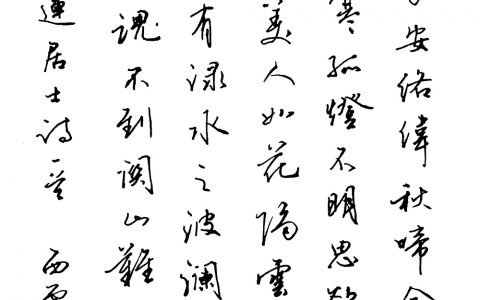 安絡緯秋啼金
寒孤燈不明思欲
美人如花隔雲
有渌水之波瀾
魂不到関山難
蓮居士詩一首 西